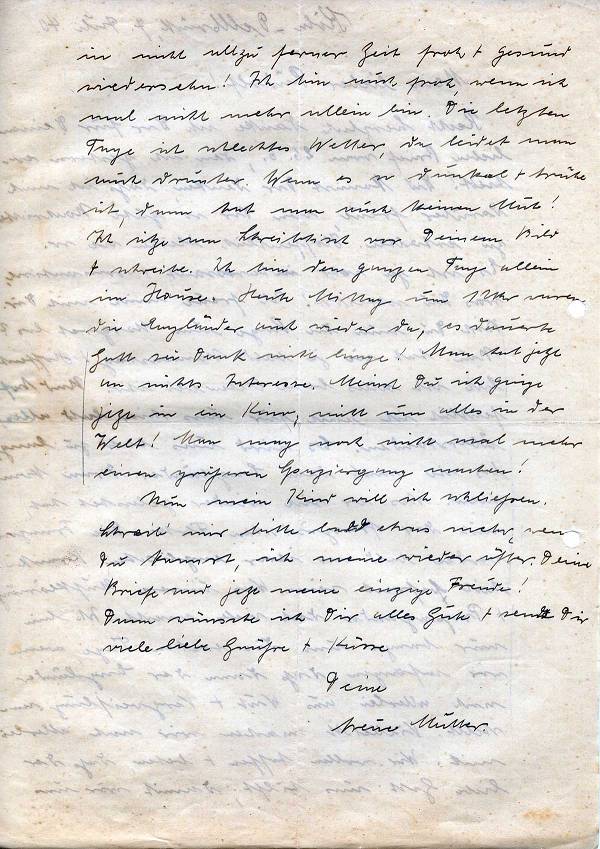 in nicht allzu ferner Zeit froh + gesund
wiedersehn! Ich bin auch froh, wenn ich
mal nicht mehr allein bin. Die letzten
Tage ist schlechtes Wetter, da leidet man
auch drunter. Wenn es so dunkel + trübe
ist, dann hat man auch keinen Mut!
Ich sitze am Schreibtisch vor Deinem Bild
+ schreibe. Ich bin den ganzen Tag allein
im Hause. Heute Mittag um 1 Uhr waren
die Engländer auch wieder da, es dauerte
Gott sei Dank nicht lange! Man hat jetzt
an nichts Interesse. Meinst Du ich ginge
jetzt in ein Kino, nicht um alles in der
Welt! Man mag noch nicht mal mehr
einen größeren Spaziergang machen!
Nun mein Kind will ich schließen.
Schreib mir bitte bald etwas mehr, wenn
Du kannst, ich meine wieder öfter. Deine
Briefe sind jetzt meine einzige Freude!
Dann wünsche ich Dir alles Gute + sende Dir
viele liebe Grüße + Küsse
Deine
treue Mutter.